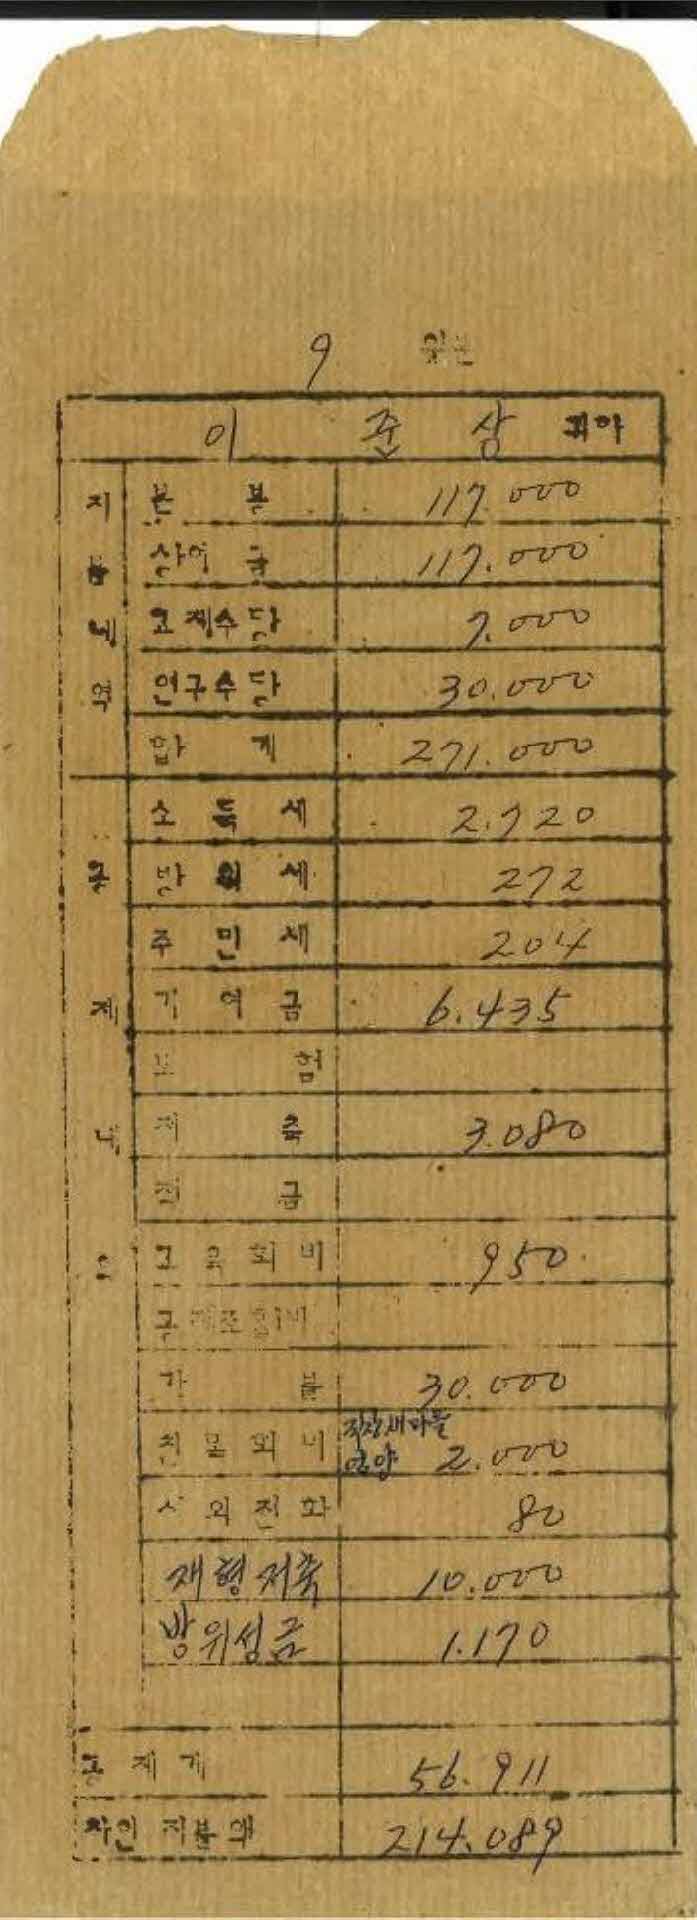 9 월분
이 준 상 귀하
지불내역
본 봉 117.000
상여금 117.000
교재수당 7.000
연구수당 30.000
합 계 271.000
공제내
소득세 2.720
방위세 272
주민세 204
기여금 6.435
보 험
저 축 3.080
전 금
교육회비 950
가 불 30.000
친목회비 직장새마을 2.000
시외전화 80
재형저축 10.000
방위성금 1.170
공제계 56.911
차인지불액 214.089